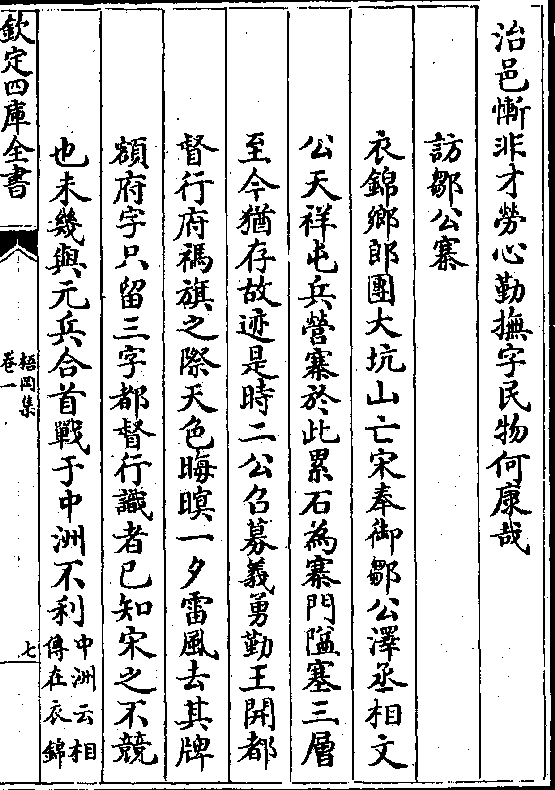 治邑慚非才勞心勤撫字民物何康哉
訪鄒公寨
衣錦鄉郎團大坑山亡宋奉御鄒公澤丞相文
公天祥屯兵營寨於此累石為寨門隘塞三層
至今猶存故迹是時二公召募義勇勤王開都
督行府禡旗之際天色晦暝一夕雷風去其牌
額府字只留三字都督行識者已知宋之不競
也未幾與元兵合首戰于中洲不利中洲云相
傳在衣錦
欽定四庫全書
梧岡集
卷一
七